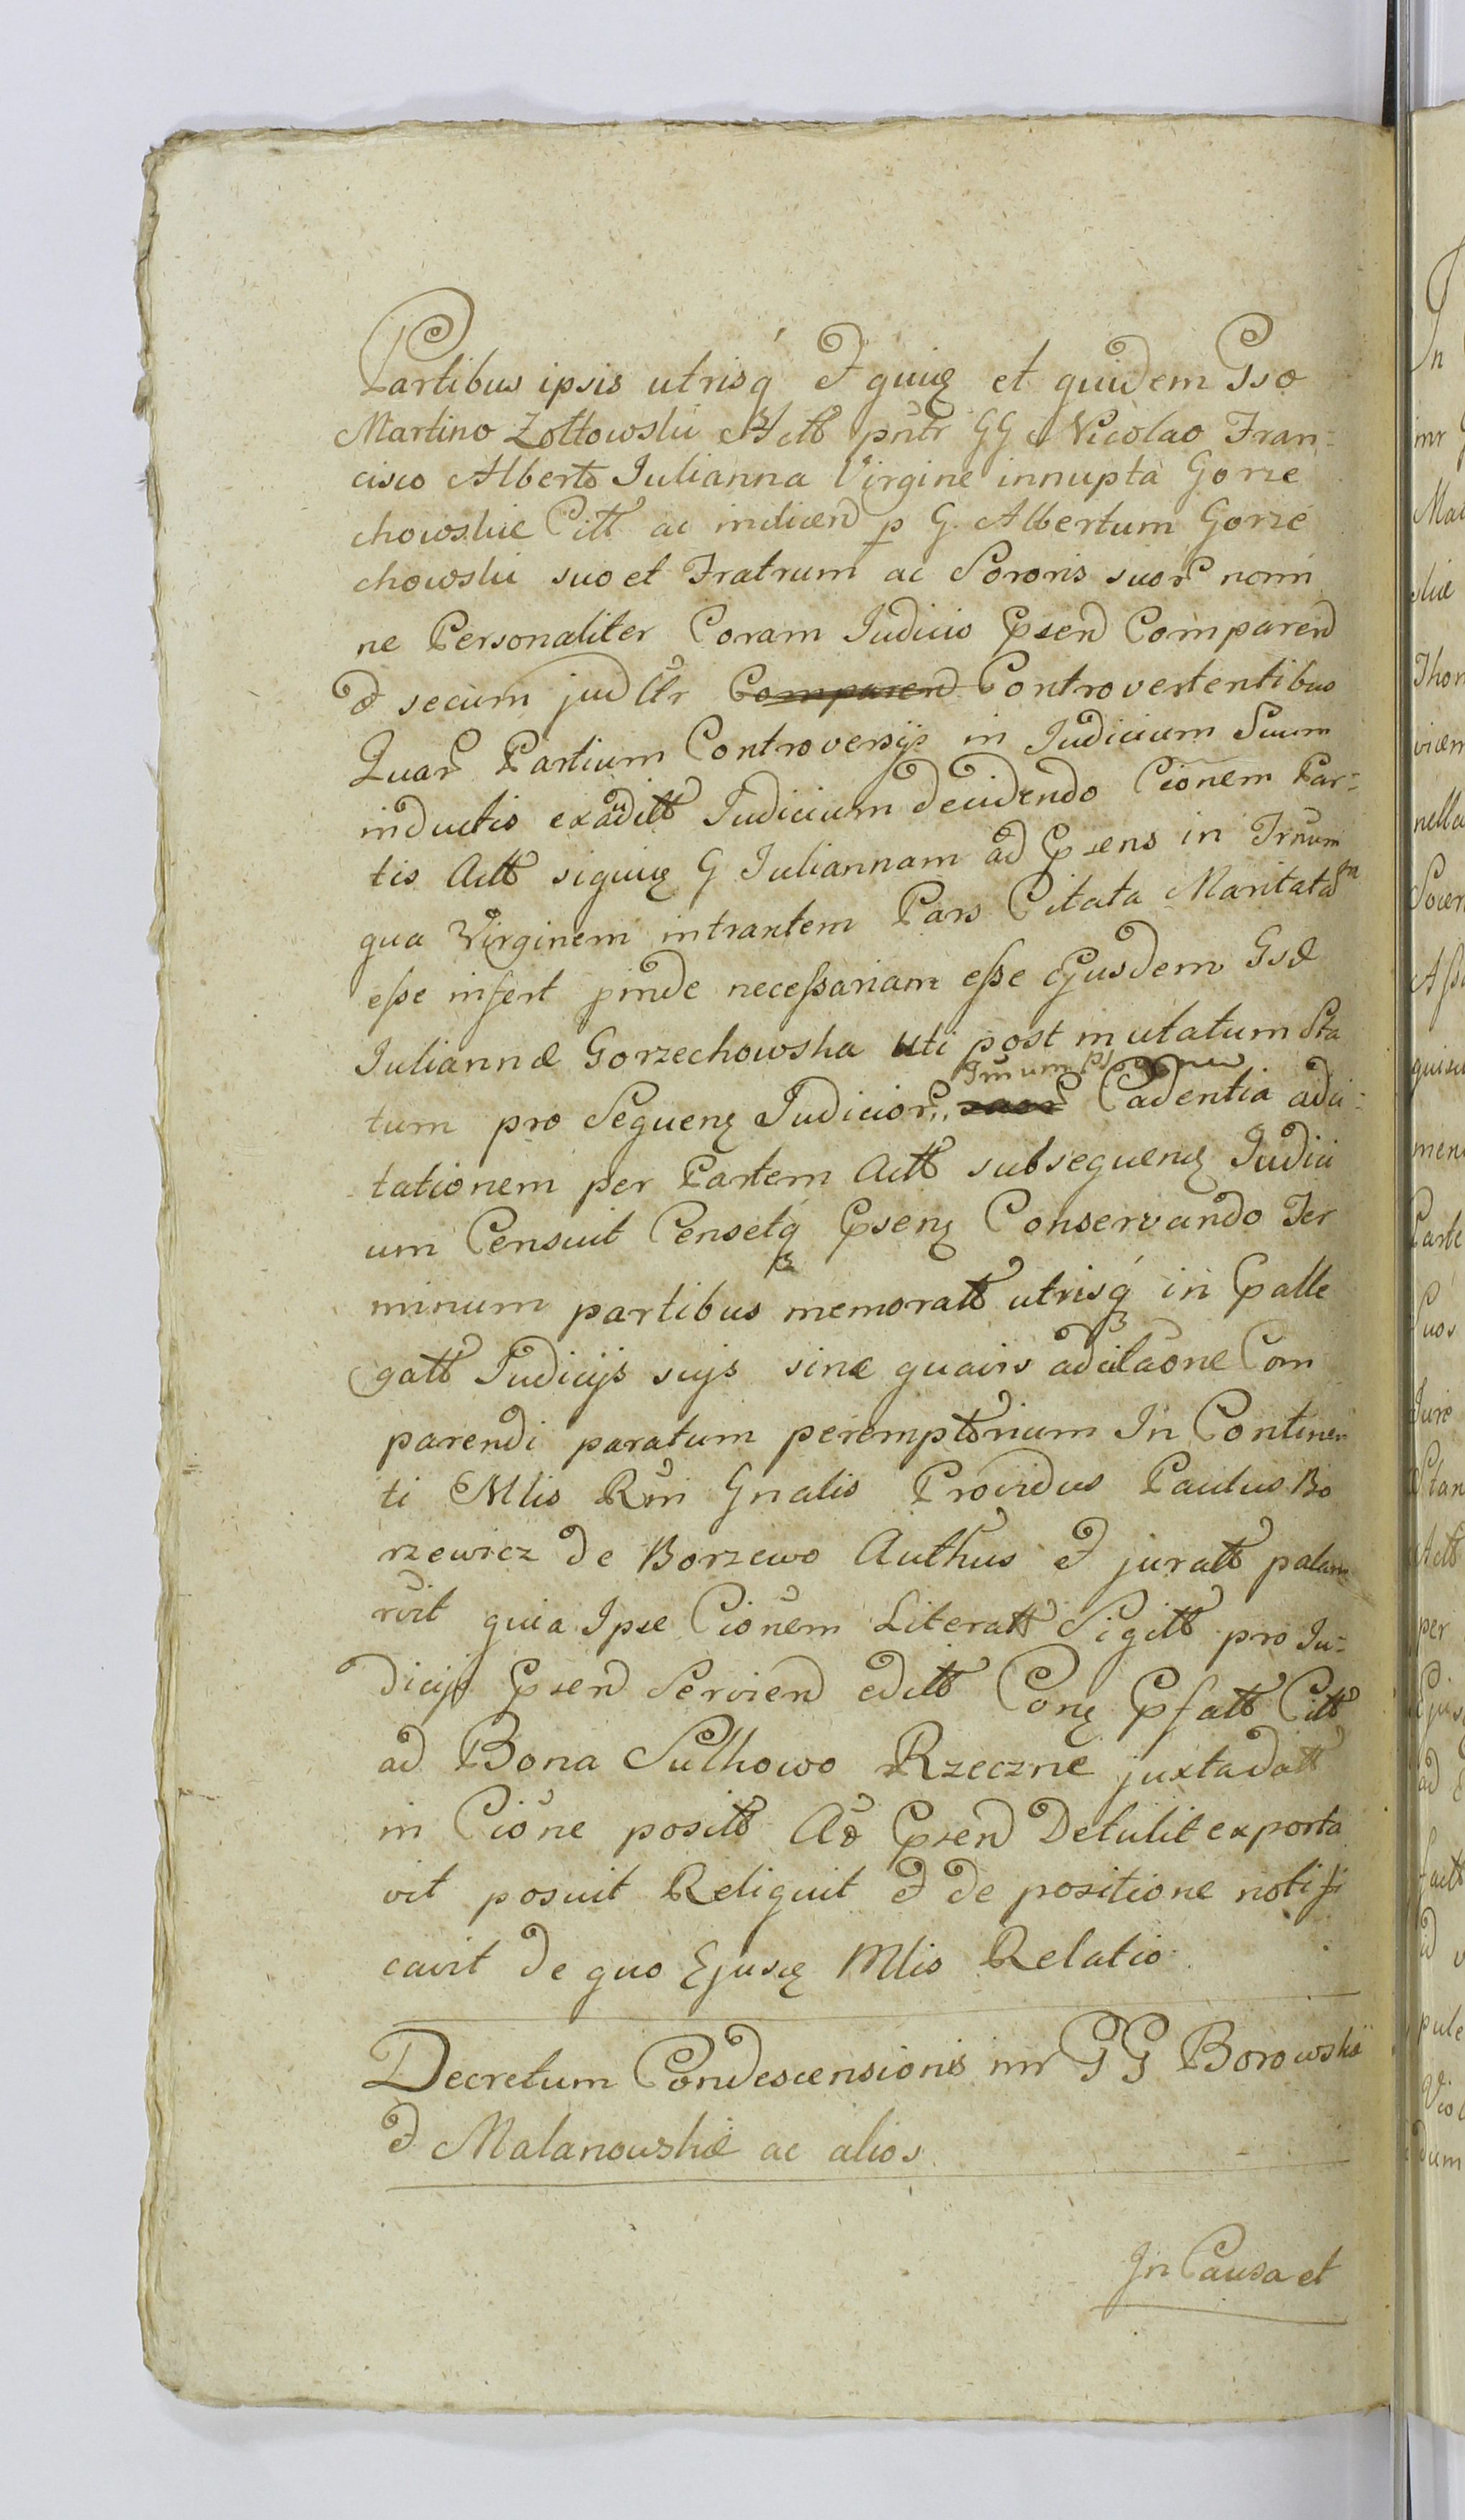 Partibus ipsis utrisq́ꝫ & quiuę et quidem Gso
Martino Zołtowski Actt pntr GG Nicolao Fran=
cisco Alberto Julianna Virgine innupta Gorze
chowskie Citt ac indicen p G. Albertum Gorze
chowski suo et Fratrum ac Sororis suor nomi
ne Personaliter Coram Judicio Psen Comparen
& secum judlr Comparen Controvertentibus
Quar Partium Controversijs in Judicium Suum
inductis exäditt Judicium decidendo Cionem Par=
tis Actt siquię G Juliannam ad Psens in Trnum
qua Virginem intrantem Pars Citata Maritatam
eße infert pinde neceßariam eße Ejusdem Gsæ
Juliannæ Gorzechowska uti post mutatum Sta
tum pro Sequenę Judicior Cadentia adci=
tationem per Partem Actt subsequenę Judici
um Censuit Censetq́ꝫ Psenę Conservando Ter
minum partibus memoratt utrisq́ꝫ in Palle
gatt Judicijs suis sine quavis adcitaone Com
parendi paratum peremptorium In Continen
ti Mlis Rni Gnalis Providus Paulus Bo
rzewicz de Borzewo Authus & juratt palam
rvit quia Ipse Cionem Literatt Sigitt pro Ju=
dicijs Psen Servien editt Conę Pfatt Citt
ad Bona Sulkowo Rzeczne juxta datt
in Cione positt Ad Psen Detulit exporta
vit posuit Reliquit & de positione notifi
cavit de quo Ejusę Mlis Relatio
Decretum Condescensionis inr GG Borowskie
& Malanowskie ac alios
In Causa et